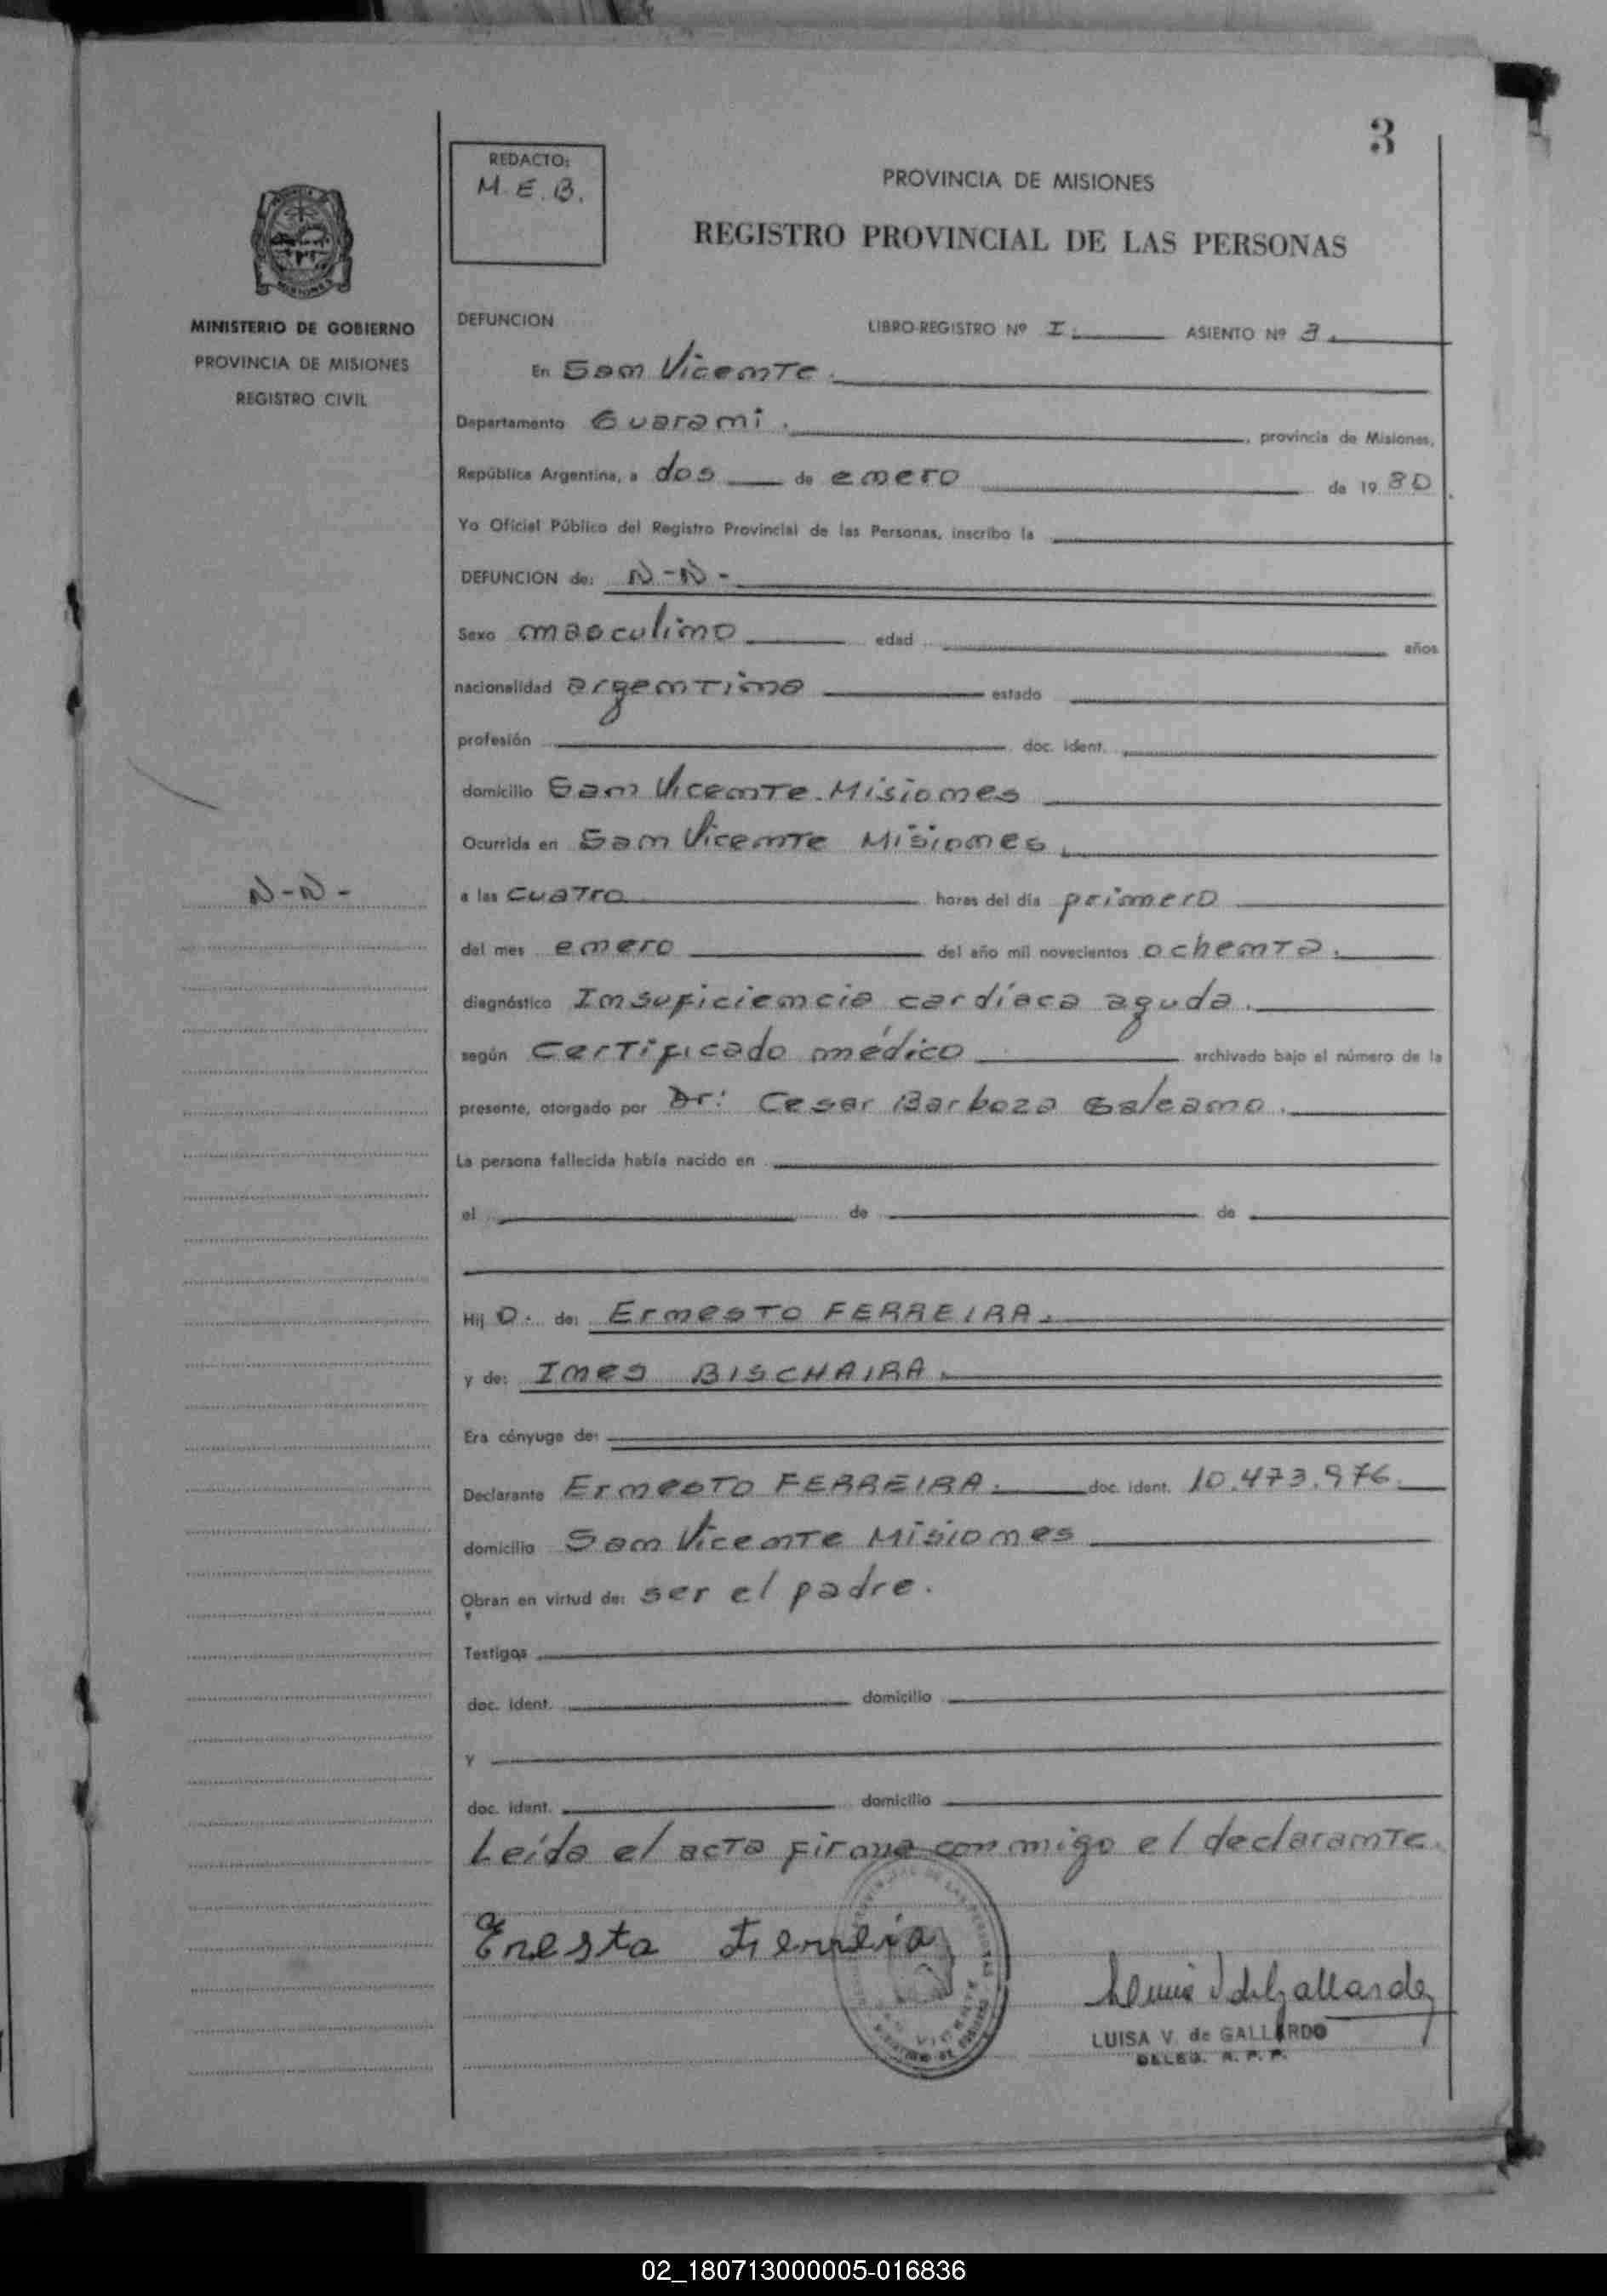 3
REDACTO:
M.E.B.
PROVINCIA DE MISIONES
REGISTRO PROVINCIAL DE LAS PERSONAS
MINISTERIO DE GOBIERNO
PROVINCIA DE MISIONES
REGISTRO CIVIL
DEFUNCION LIBRO-REGISTRO Nº I. ASIENTO Nº 3.
En San Vicente.
Departamento Guarani. , provincia de Misiones,
República Argentina, a dos de enero de 1980.
Yo Oficial Público del Registro Provincial de las Personas, inscribo la
DEFUNCION de: N-N-
Sexo masculino edad años
nacionalidad argentina estado
profesión doc. ident.
domicilio San Vicente. Misiones
Ocurrida en San Vicente Misiones.
N-N-
a las cuatro horas del día primero
del mes enero del año mil novecientos ochenta.
diagnóstico Insuficiencia cardíaca aguda.
según Certificado médico archivado bajo el número de la
presente, otorgado por Dr: Cesar Barboza Galeano.
La persona fallecida había nacido en
el de de
Hij o. de: Ernesto FERREIRA.
y de: Ines BISCHAIRA.
Era cónyuge de:
Declarante Ernesto FERREIRA. doc. ident. 10.473.976.
domicilio San Vicente Misiones
Obran en virtud de: ser el padre.
Testigos
doc. ident. domicilio
y
doc. ident. domicilio
Leída el acta firma conmigo el declarante.
Enesto Ferreira
LUISA V. de GALLARDO
DELEG. R. P. P.
02_180713000005-016836